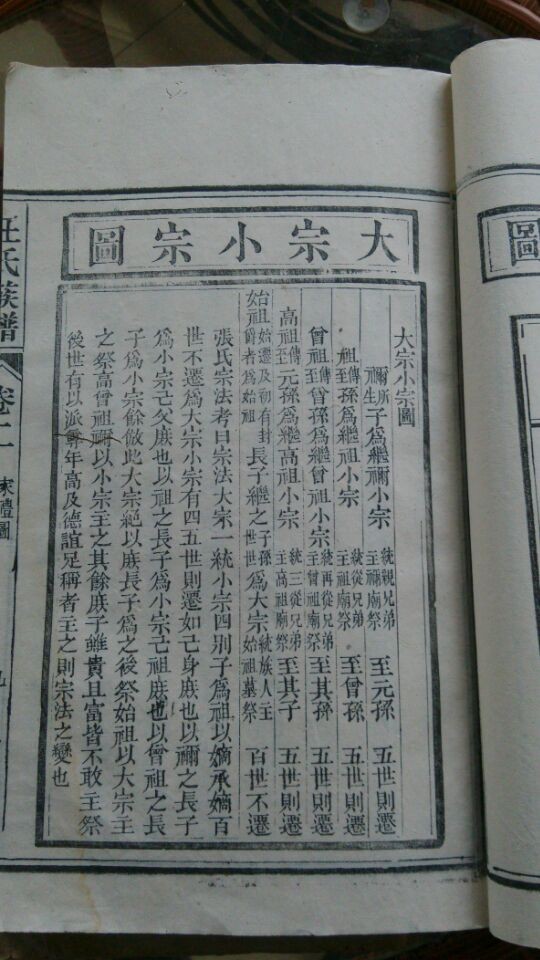 大宗小宗圖
大宗小宗圖
禰所生子為繼禰小宗 統親兄弟主禰廟祭 至元孫 五世則遷
祖傳至孫為繼祖小宗 統從兄弟主祖廟祭 至曾孫 五世則遷
曾祖傳至曾孫為繼曾祖小宗 統再從兄弟主曾祖廟祭 至其孫 五世則遷
高祖傳至元孫為繼高祖小宗 統三從兄弟主高祖廟祭 至其子 五世則遷
始祖始遷及初有封爵者為始祖 長子繼之子孫世世為大宗統族人主始祖墓祭 百世不遷
張氏宗法考曰宗法大宗一統小宗四別子為祖以嫡承嫡百
世不遷為大宗小宗有四五世則遷如己身庶也以禰之長子
為小宗己父庶也以祖之長子為小宗己祖庶也以曾祖之長
子為小宗餘倣此大宗絕以庶長子為之後祭始祖以大宗主
之祭高曾祖禰以小宗主之其餘庶子雖貴且富皆不敢主祭
後世有以派尊年高及德誼足稱者主之則宗法之變也
氏族譜 卷二 家禮圖
圖